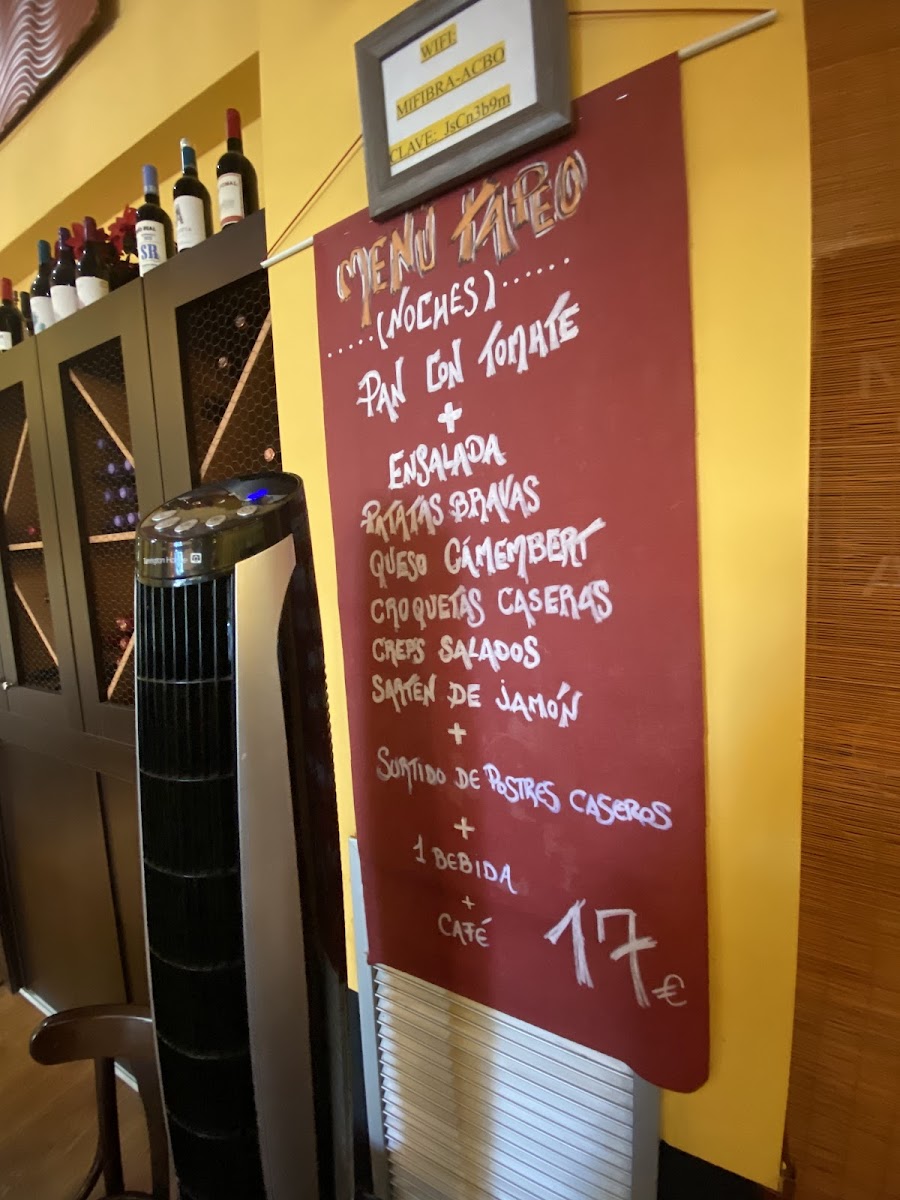 WIFI:
MIFIBRA-ACBO
CLAVE: JsCn3b9m
MENÚ TAPEO
(NOCHES)......
.....
PAN CON TOMATE
+
ENSALADA
PATATAS BRAVAS
QUESO CÁMEMBERT
CROQUETAS CASERAS
CREPS SALADOS
SARTÉN DE JAMÓN
+
SURTIDO DE POSTRES CASEROS
+
1 BEBIDA
+
CAFÉ
17€
SR